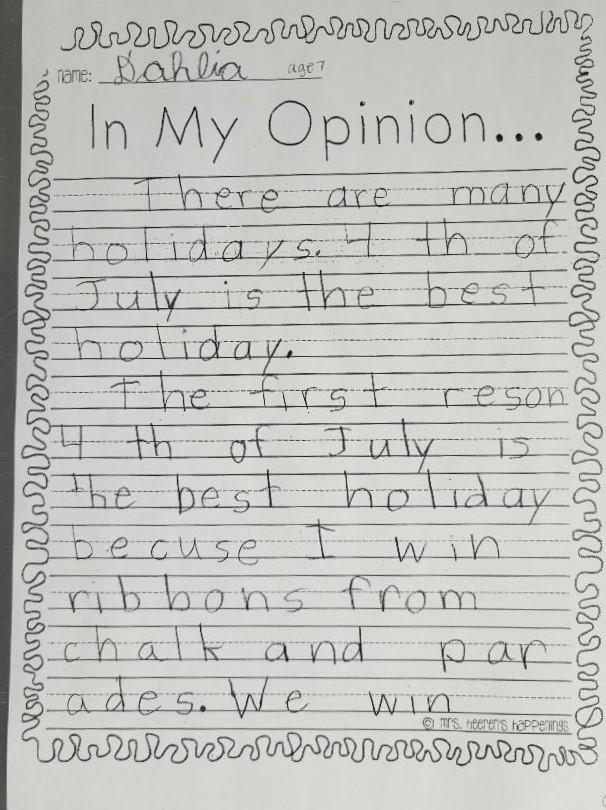 name: Dahlia age 7
In My Opinion...
There are many
holidays. 4 th of
July is the best
holiday.
The first reson
4 th of July is
the best holiday
becuse I win
ribbons from
chalk and par
ades. We win
© mrs. heeren's happenings